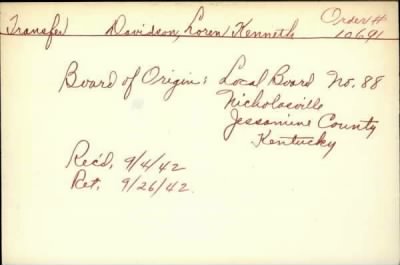 Order #
Transfer Davidson, Loren Kenneth 10691
Board of Origin: Local Board No. 88
Nicholasville
Jessamine County
Kentucky
Rec'd. 9/4/42
Ret. 9/26/42.